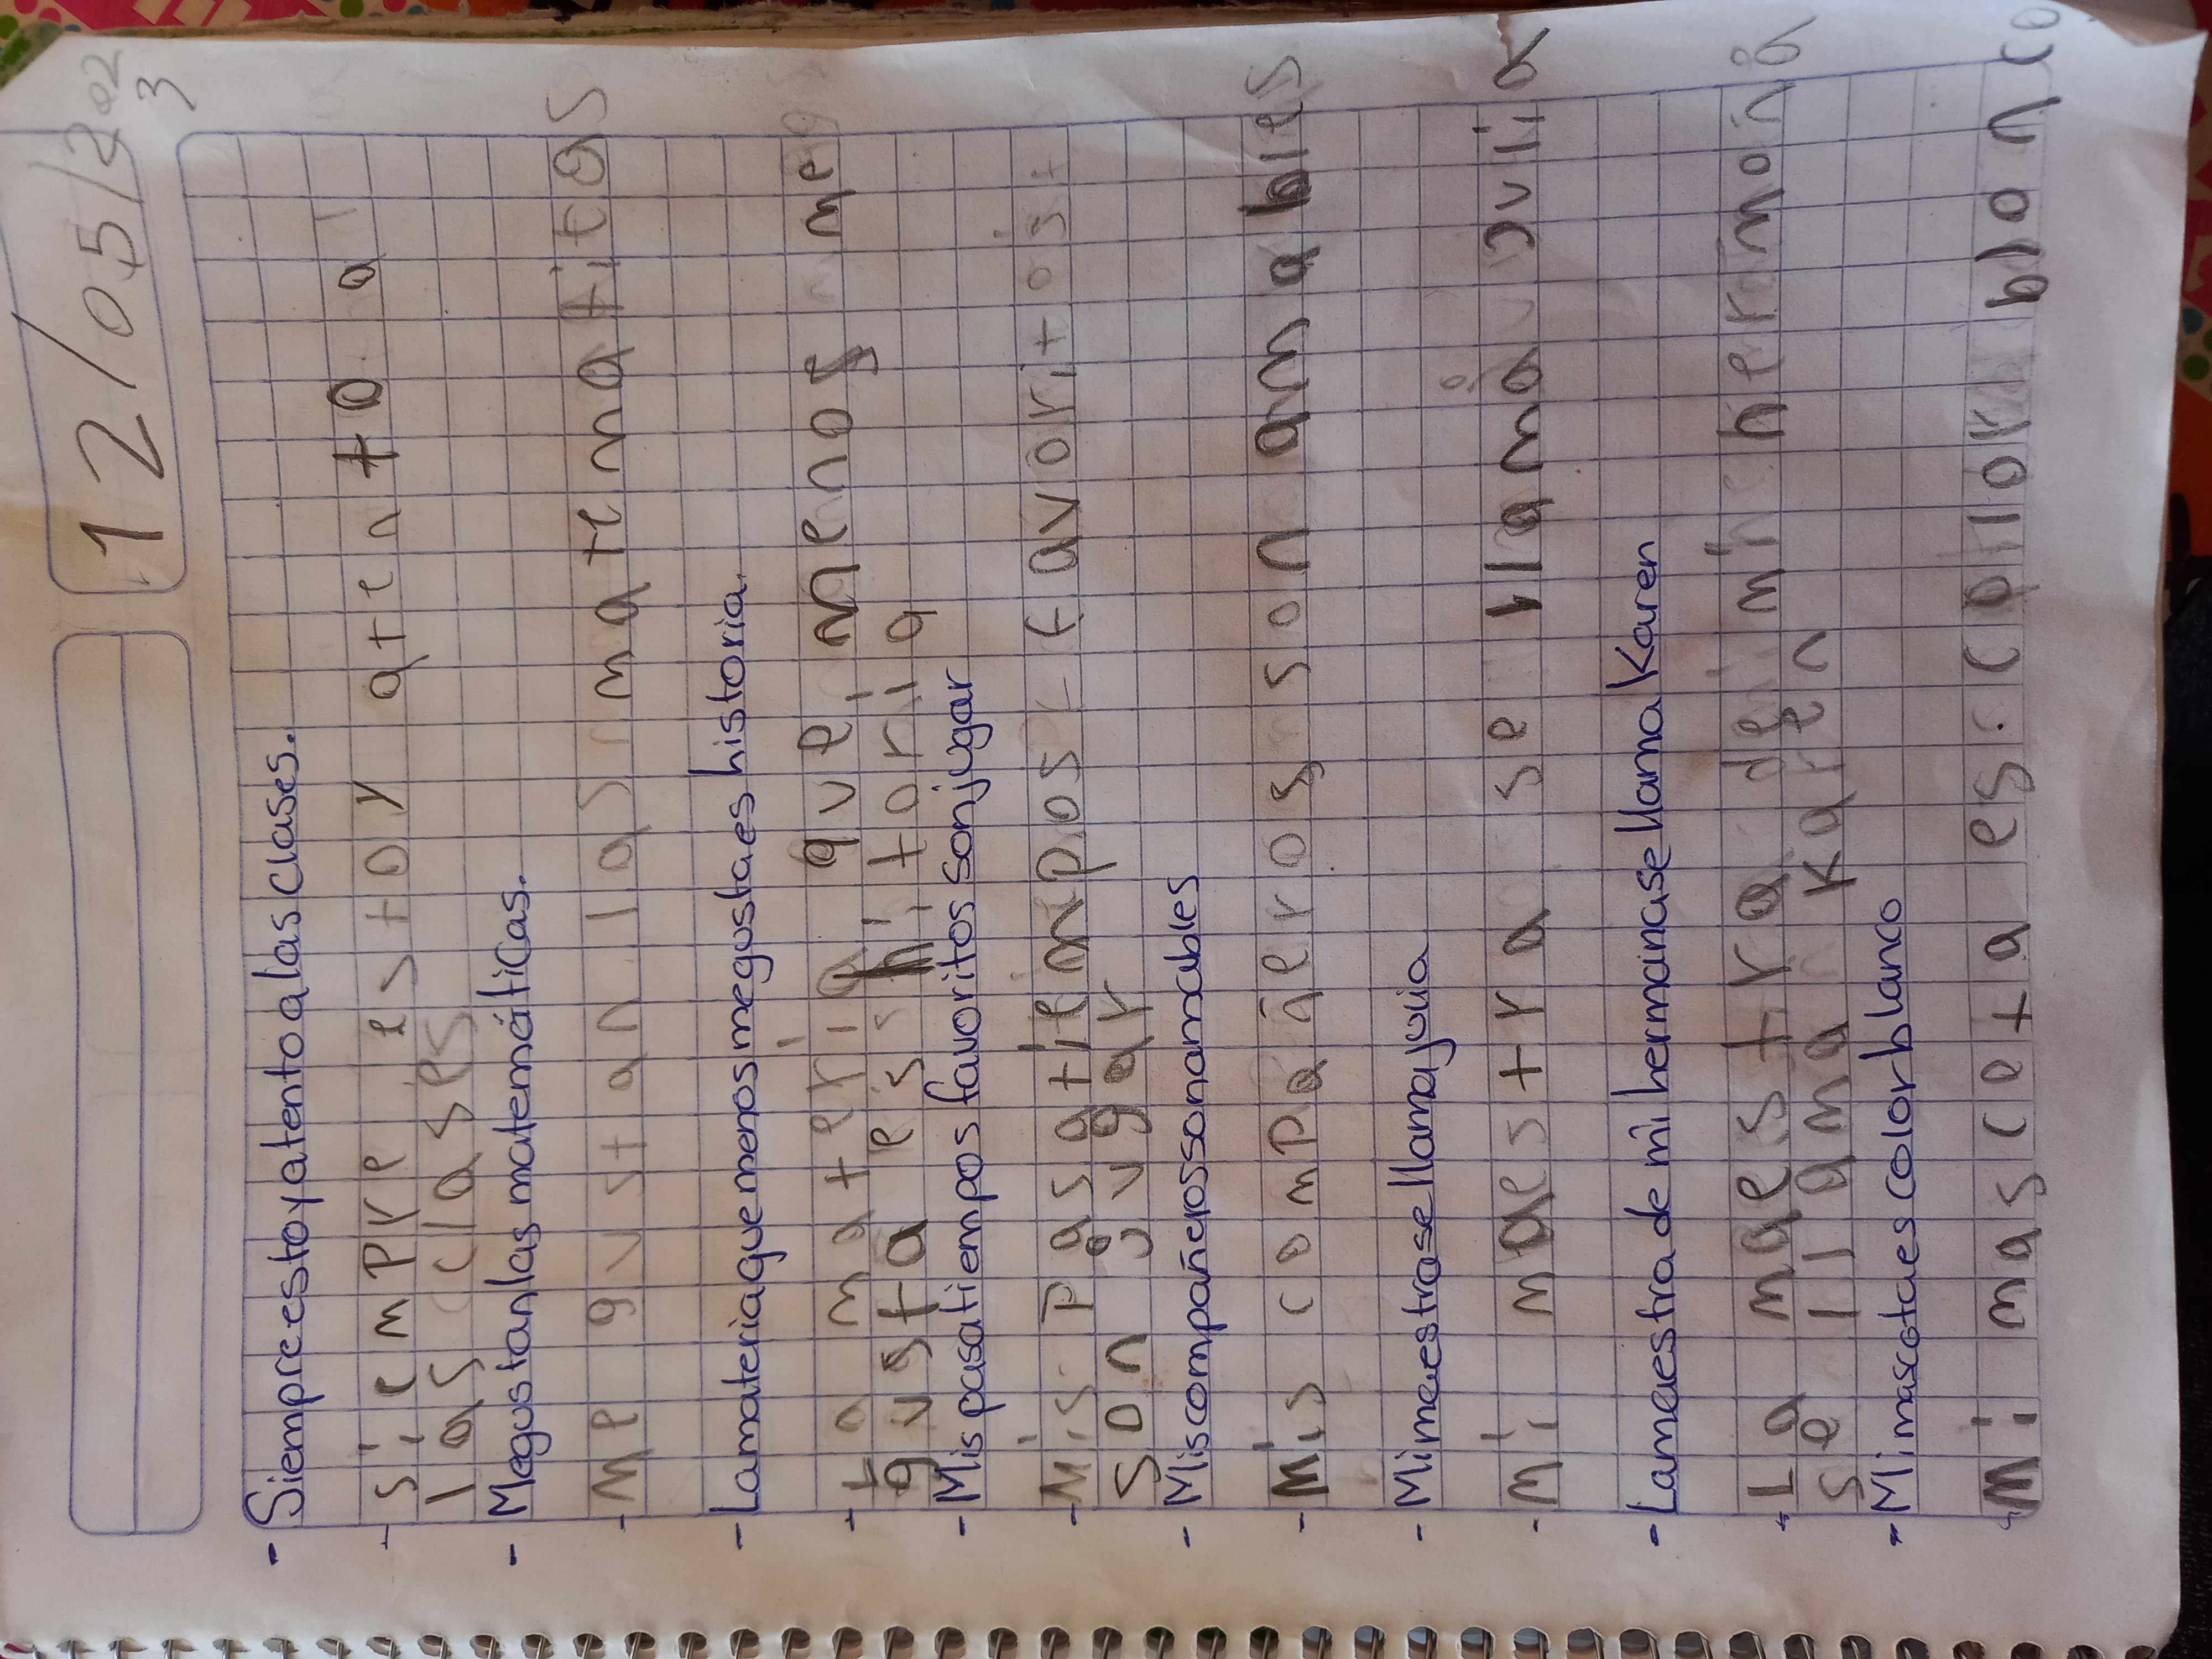 12/05/202
3
- Siempreestoyatentoalasclases.
- siempre estoy atento a
las clases
- Megustanlasmatemáticas.
- Me gustan las matematitas
- Lamateriaquemenosmegustaeshistoria.
- La materia que menos me
gusta es hitoria
- Mis pasatiempos favoritos sonjugar
- Mis pasatiempos favoritos
son jugar
- Miscompañerossonamables
- Mis compañeros son amables
- Mimaestrasellamajulia
- mi maestra se llama julia
- Lamaestrademihermanasellama Karen
- La maestra de mi hermana
se llama Karen
- Mimascotaescolorblanco
- Mi masceta es color blanco